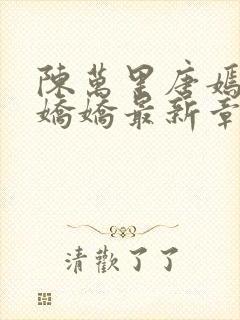 陳萬里唐嫣
嬌嬌最新章
清歡了了